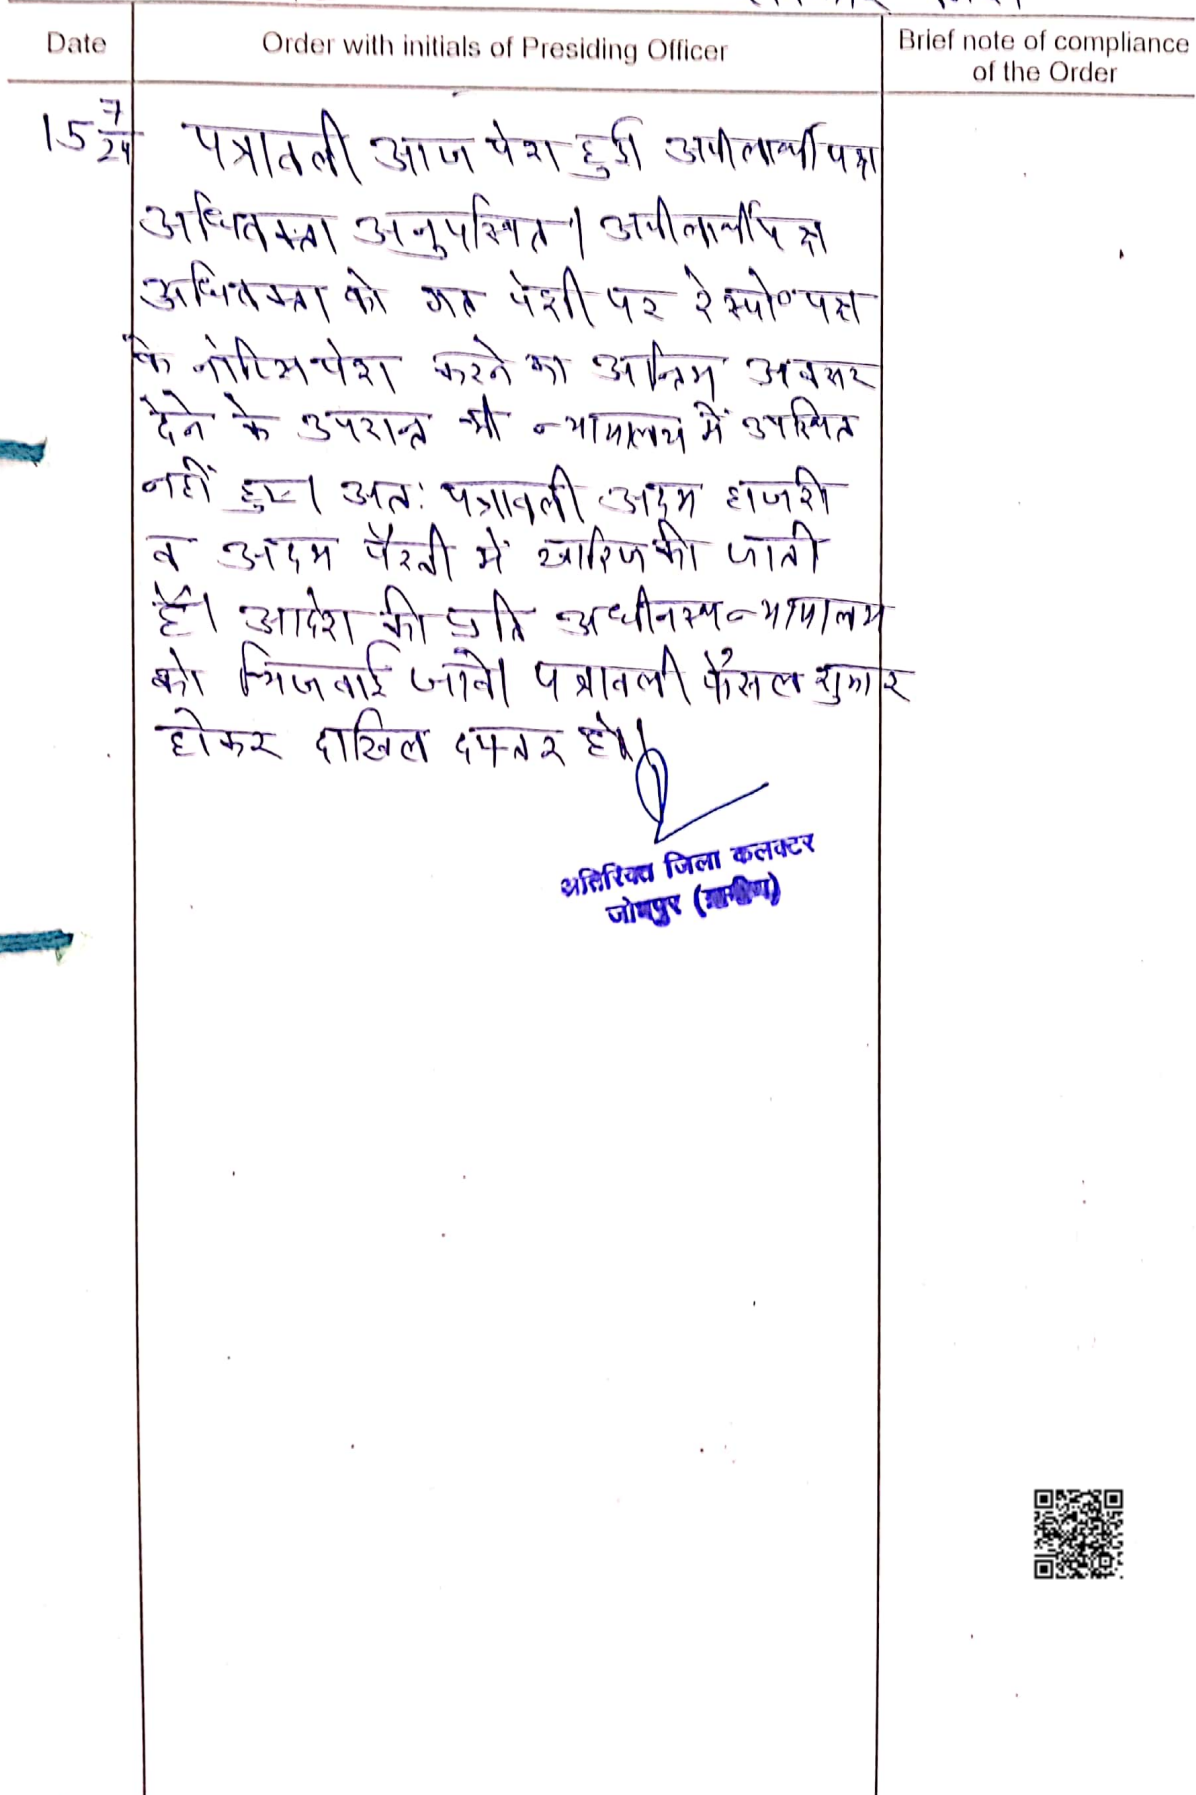 Date
Order with initials of Presiding Officer
Brief note of compliance
of the Order
15 7/24
पत्रावली आज पेश हुई अपीलार्थी पक्ष
अधिवक्ता अनुपस्थित। अपीलार्थी पक्ष
अधिवक्ता को गत पेशी पर रेस्पो० पक्ष
के नोटिस पेश करने का अन्तिम अवसर
देने के उपरान्त भी न्यायालय में उपस्थित
नहीं हुए। अतः पत्रावली अदम हाजरी
व अदम पैरवी में खारिज की जाती
है। आदेश की प्रति अधीनस्थ न्यायालय
को भिजवाई जावे। पत्रावली फैसल शुमार
होकर दाखिल दफ्तर हो।
अतिरिक्त जिला कलक्टर
जोधपुर (ग्रामीण)